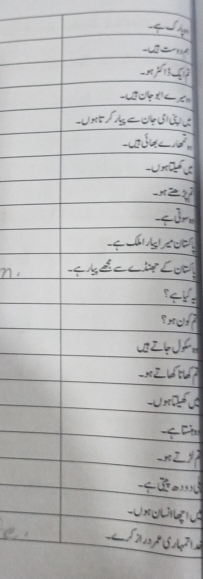 وہ پارک ہے۔
ہم دوست ہیں۔
تم ایک ڈاکٹر ہو۔
وہ میرے ابو جان ہیں۔
میں اپنی امی جان سے پیار کرتا ہوں۔
وہ تمھارے بھائی ہیں۔
میں کھیلتا ہوں۔
تم پڑھتے ہو۔
وہ سوتی ہے۔
پاکستان میرا پیارا ملک ہے۔
پاکستان کے جھنڈے سے مجھے پیار ہے۔
یہ کیا ہے؟
تم کون ہو؟
وہ سکول جاتے ہیں
تم کھانا کھاتے ہو۔
میں کھیلتا ہوں۔
وہ ہنستا ہے۔
تم لڑتے ہو۔
دودھ پیتی ہے۔
میں اچھا انسان ہوں۔
خدا تمہاری عمر دراز کرے۔